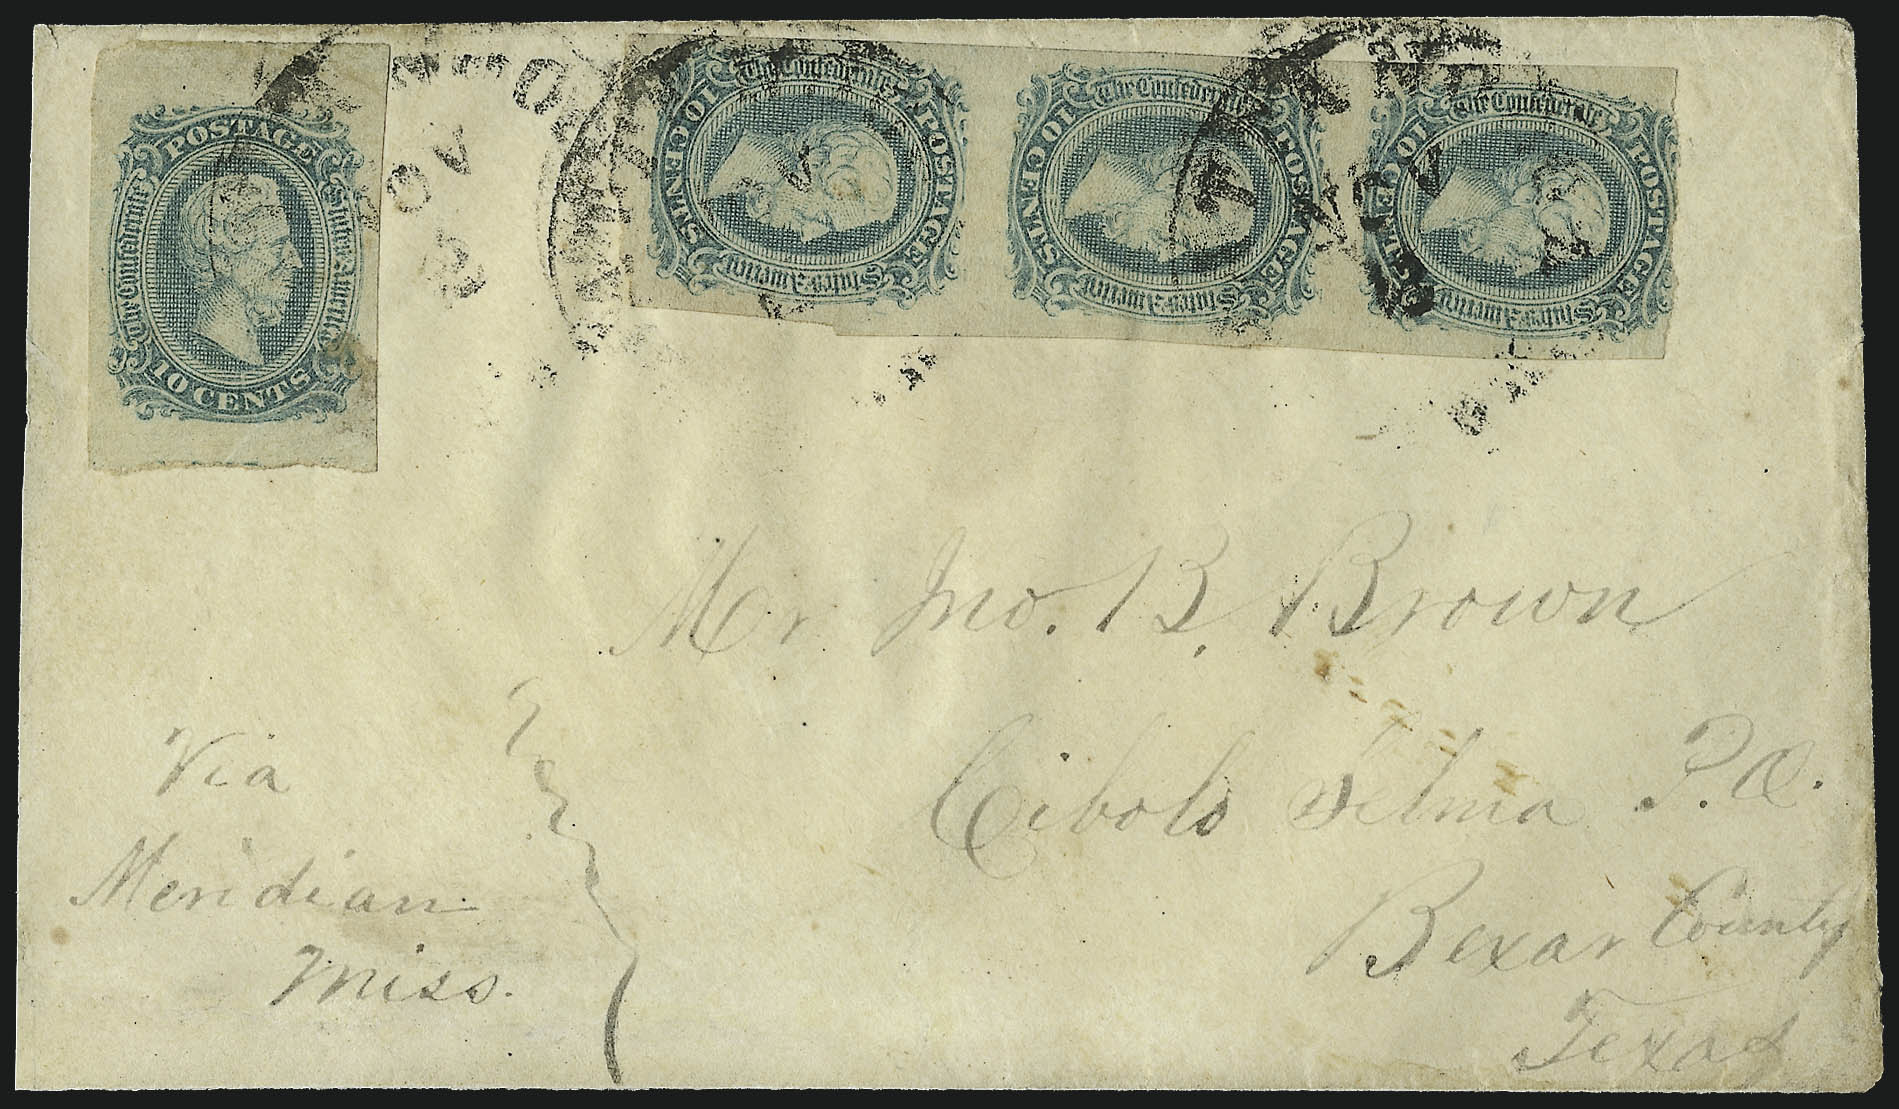 POSTAGE
The Confederate States America
10 CENTS
The Confederate
10 CENTS POSTAGE
States America
The Confederate
10 CENTS POSTAGE
States America
The Confederate
10 CENTS POSTAGE
States America
NOV
NOV
Mr Jno. B. Brown
Cibolo Selma P.O.
Bexar County
Texas
Via
Meridian
Miss.